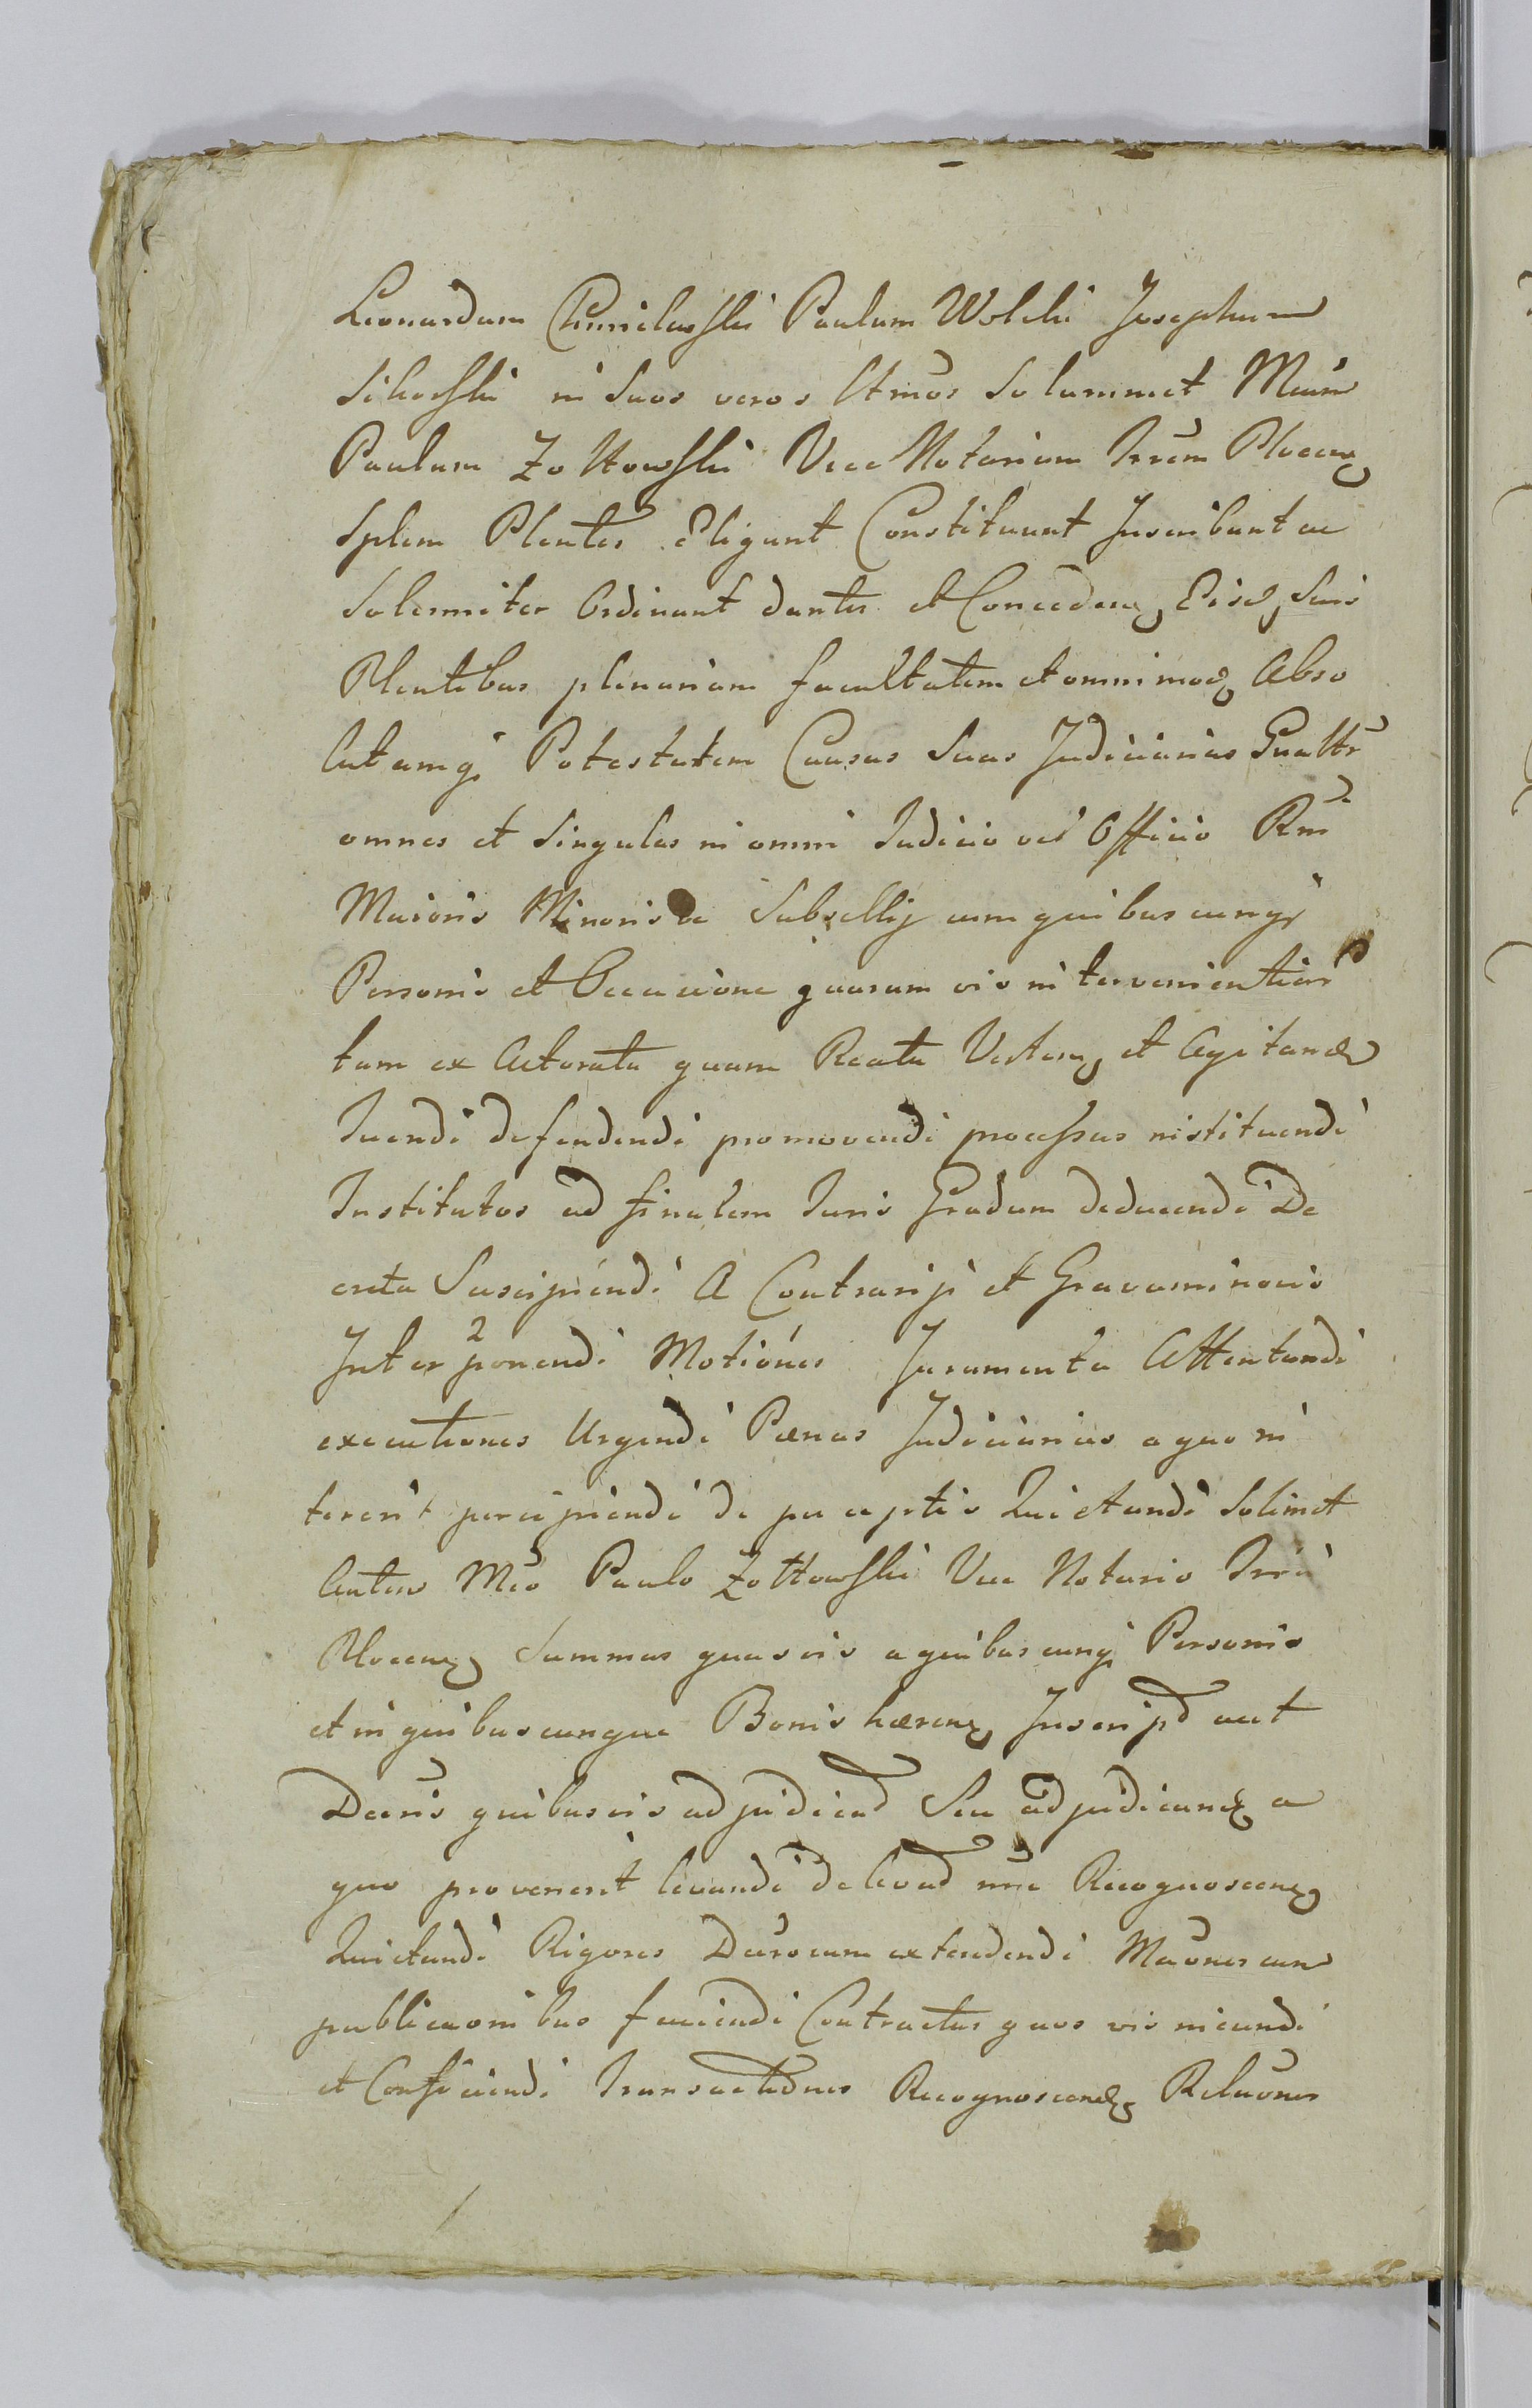 Leonardum Chmielewski Paulum Wolski Josephum
Sikorski in suos veros Utrnos Solummet Mcium
Paulum Zołtowski Vice Notarium Trrem Plocen
Splem Plentes Eligunt Constituunt Inscribunt ac
Solemniter Ordinant dantes et Conceden Eisd Suis
Plentibus plenariam facultatem et omnimod Abso
lutamq Potestatem Causas Suas Judiciarias Gnaltr
omnes et Singulas in omni Judicio vel Officio Rni
Maioris Minoris ve Subsellij cum quibus cunq
Personis et Occasione quarum vis intervenientiar
tam ex Actoratu quam Reatu Verten et Agitand
Tuendi defendendi promovendi processus instituendi
Institutos ad finalem Juris Gradum deducendi De
creta Suscipiendi A Contrarijs et Gravaminovis
Inter ponendi Motiones Juramenta Attentandi
executiones Urgendi Pænas Judiciarias a quo in
terer't percipiendi de perceptis Quietandi Solimet
Autem Mco Paulo Zołtowski Vice Notario Trri
Plocen Summas quasvis a quibus cunq Personis
et in quibuscunque Bonis hæren Inscript aut
Decris quibusvis adjudicad Seu adjudicand a
quo provenerit levandi de levad nne Recognoscen
Quietandi Rigores Decrorum extendendi Maones cum
publicaonibus faciendi Contractus quos vis ineundi
et Conficiendi Transactiones Recognoscend Reluones